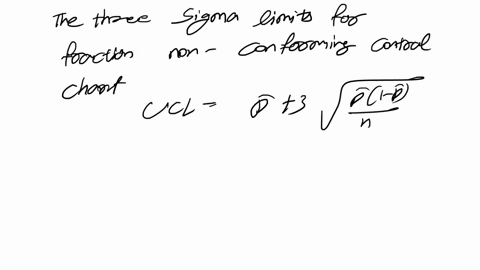 The three Sigma limits for
fraction non- conforming control
chart
UCL = p̄ +3 √(p̄(1-p̄)/n)